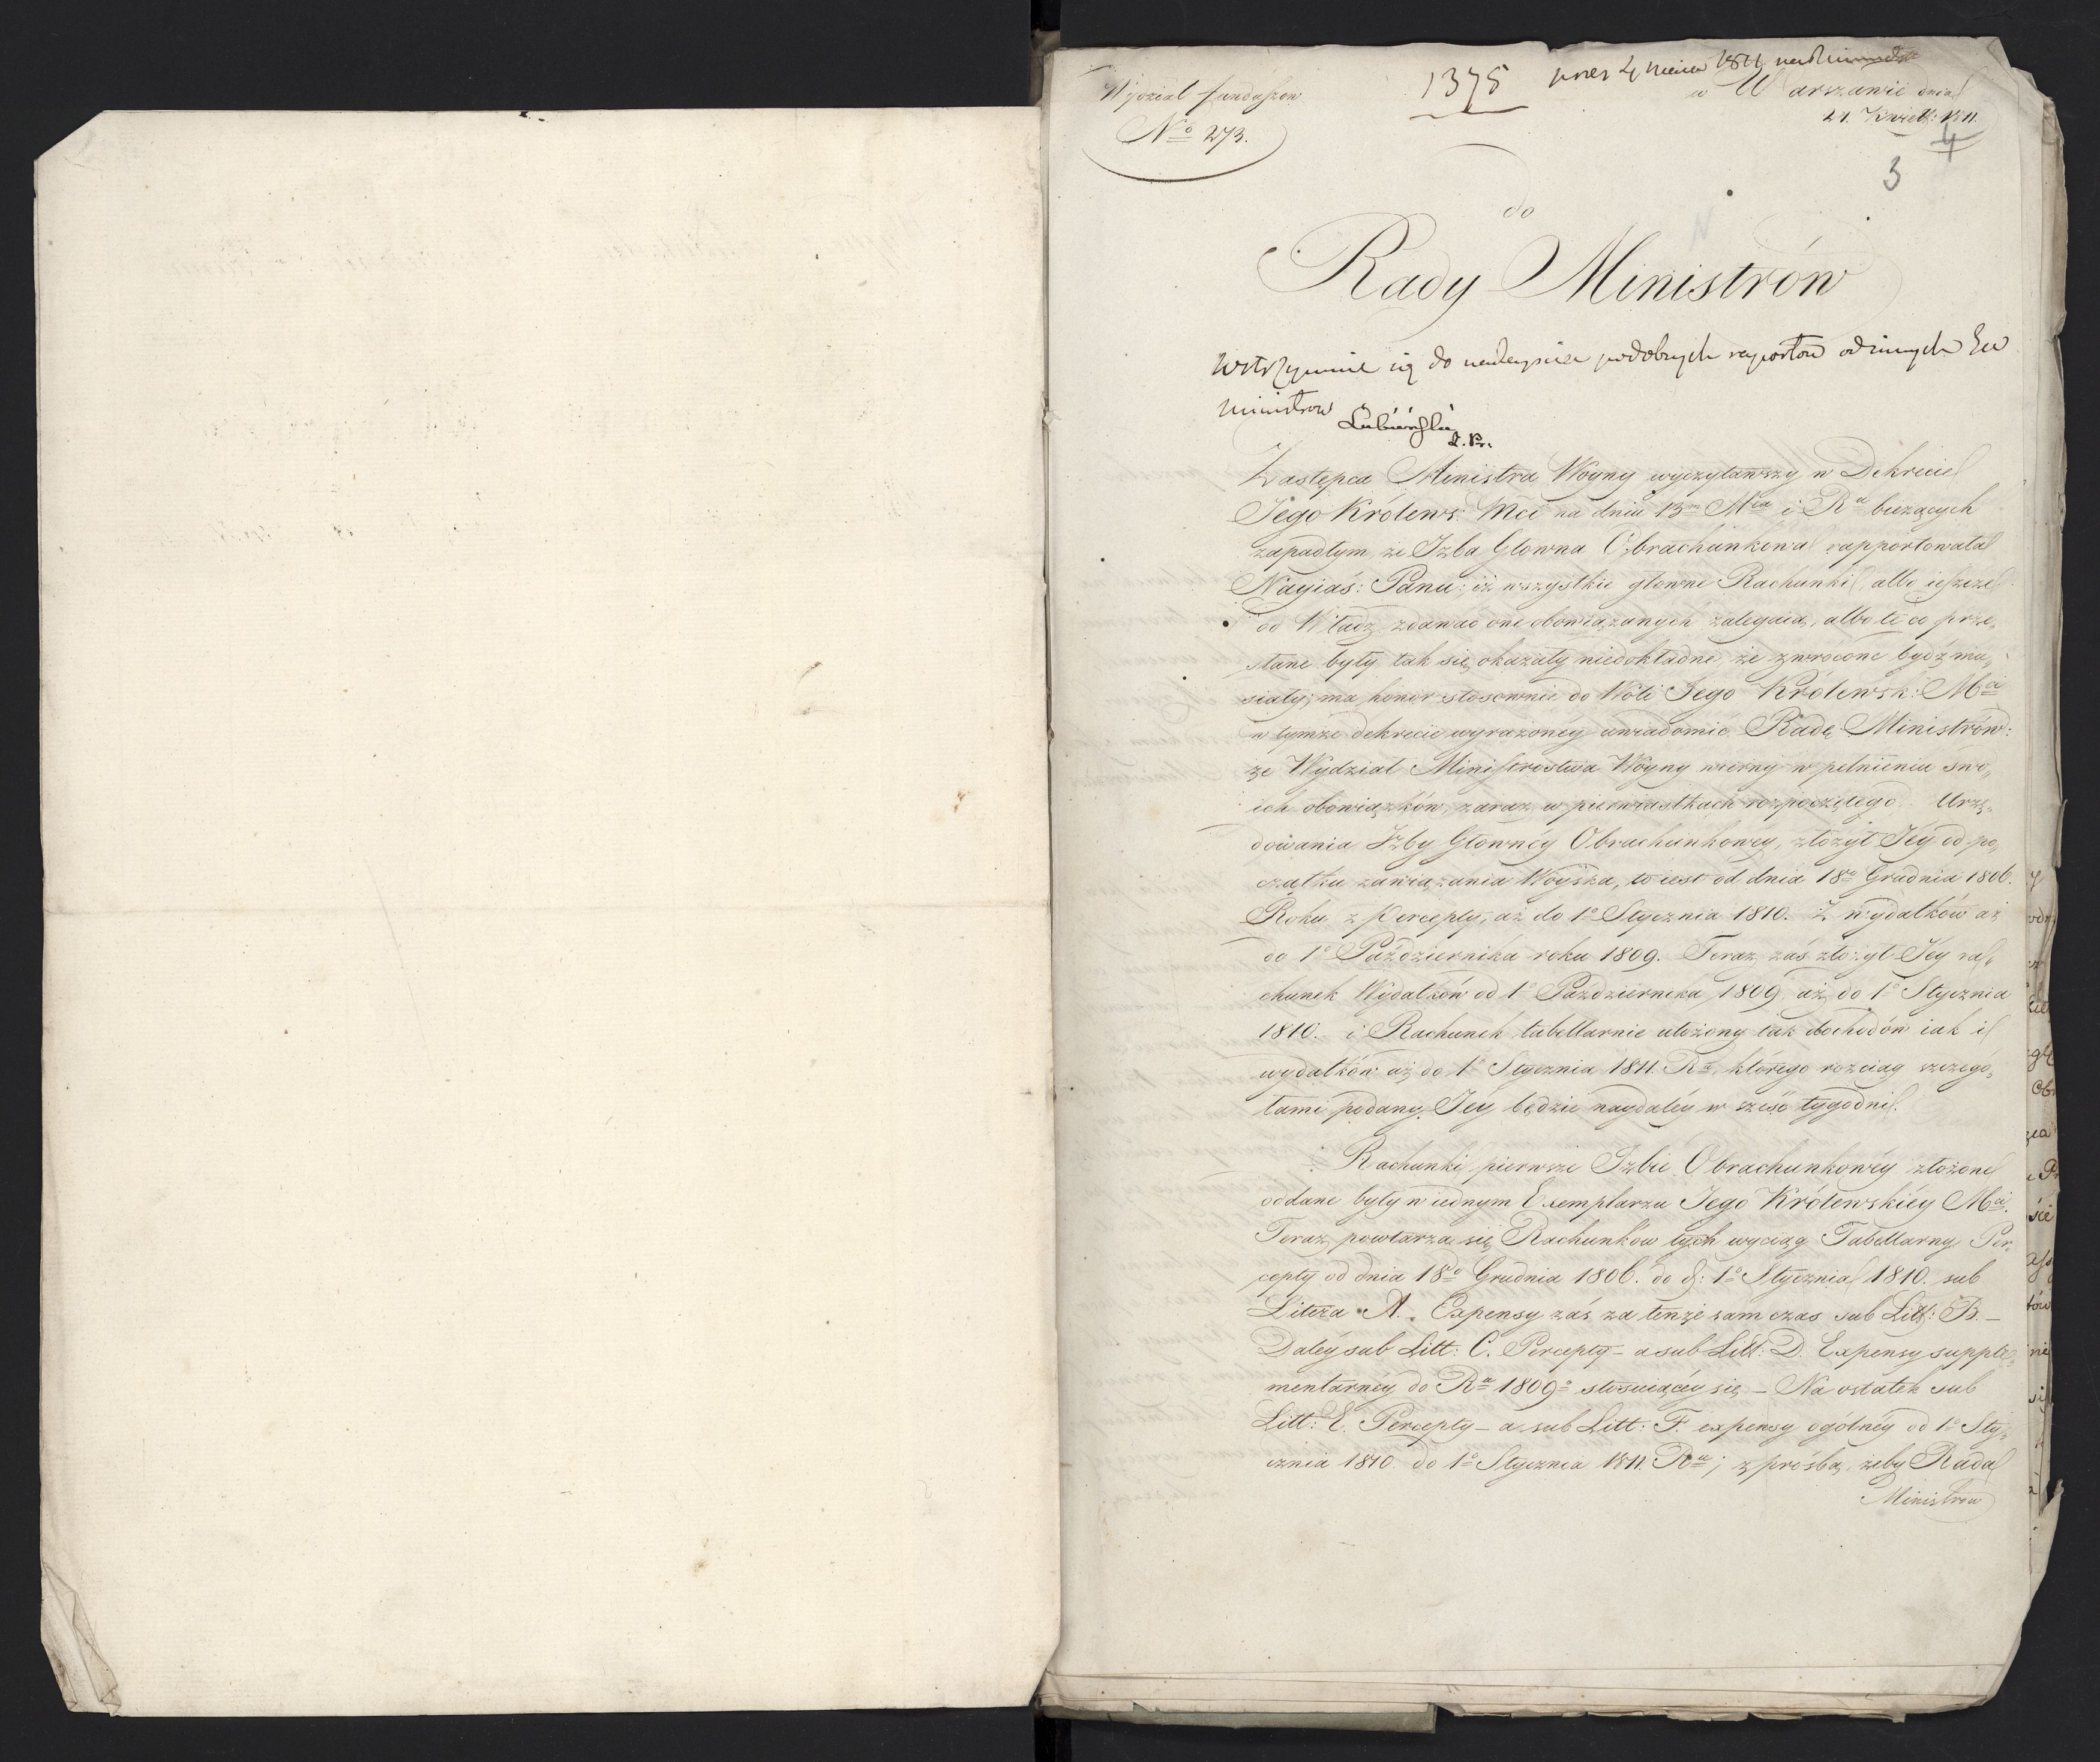 Wydział funduszow
No 273.
1375
w Warszawie dnia
21. Kwiet: 1811.
4
3
do
Rady Ministrów
Wstrzymuie się do nadeyscia podobnych raportow od innych
ministrow Łubieński
Zastępca Ministra Woyny wyczytawszy w Dekrecie
Jego Królews: Mci na dniu 13m Mca i Ra bieżących
zapadłym, że Izba Głowna Obrachunkowa rapportowała
Nayiaś: Panu: iż wszystkie głowne Rachunki, albo ieszcze
od Władz zdawać one obowiązanych zalegaią, albo te co prze„
słane były tak się okazały niedokładne, że zwrócone bydź mu„
siały; ma honor stosownie do Woli Jego Królewsk: Mci
w tymże dekrecie wyrażonéy uwiadomić Radę Ministrów:
że Wydział Ministerstwa Woyny wierny w pełnieniu swo„
ich obowiązków, zaraz w pierwiastkach rozpoczętego Urzę„
dowania Izby Głownéy Obrachunkowey, złożył Jéy od po„
czątku zawiązania Woyska, to iest od dnia 18o Grudnia 1806.
Roku z Percepty, aż do 1o Stycznia 1810. Z wydatków aż
do 1o Października roku 1809. Teraz zaś złożył Jey ra„
chunek Wydatków od 1o Października 1809 aż do 1o Stycznia
1810. i Rachunek tabellarnie ułożony tak dochodów iak i
wydatków aż do 1o Stycznia 1811. Ra, którego rozciąg szczegó„
łami podany Jey będzie naydaléy w sześć tygodni.
Rachunki pierwsze Izbie Obrachunkowéy złożone
oddane były w iednym Exemplarzu Jego Królewskiéy Mci.
Teraz powtarza się Rachunków tych wyciąg Tabellarny Per„
cepty od dnia 18o Grudnia 1806. do d: 1o Stycznia 1810. sub
Litera A. Expensy zaś za tenże sam czas sub Litt: B. _
Daléy sub Litt: C. Percepty _ a sub Litt: D. Expensy supple„
mentarnéy do Ra 1809o stosuiącéy się _ Na ostatek sub
Litt: E. Percepty _ a sub Litt: F. expensy ogólnéy od 1o Sty„
cznia 1810. do 1o Stycznia 1811. Ra; z prośbą, żeby Rada
Ministrow